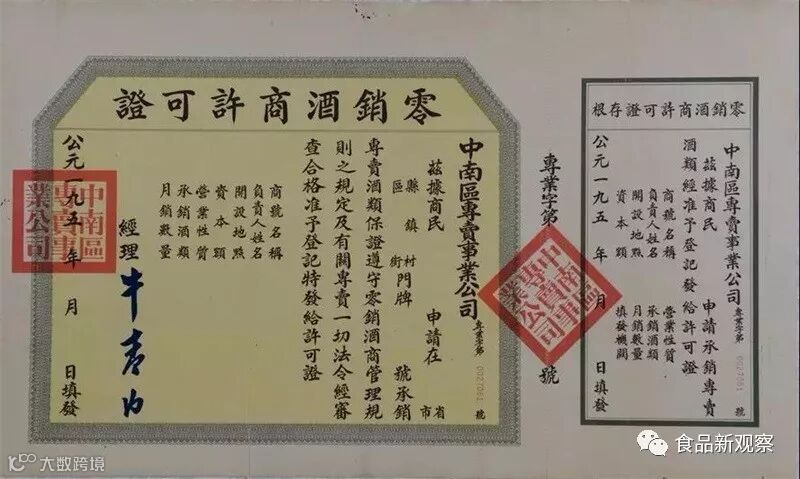 零銷酒商許可證存根
中南區專賣事業公司 專業字第 0027061 號
茲據商民 申請承銷專賣
酒類經准予登記發給許可證
商號名稱 營業性質
負責人姓名 承銷酒類
開設地點 月銷數量
資本額 填發機關
公元一九五 年 月 日填發
專業字第 號
中南區專賣事業公司
零銷酒商許可證
中南區專賣事業公司 專業字第 0027061 號
茲據商民 申請在 省市
縣區 鎮 村街 門牌 號承銷
專賣酒類保證遵守零銷酒商管理規
則之規定及有關專賣一切法令經審
查合格准予登記特發給許可證
商號名稱
負責人姓名
開設地點
資本額
營業性質
承銷酒類
月銷數量
經理 牛
公元一九五 年 月 日填發
中南區專賣事業公司
食品新观察
大数跨境